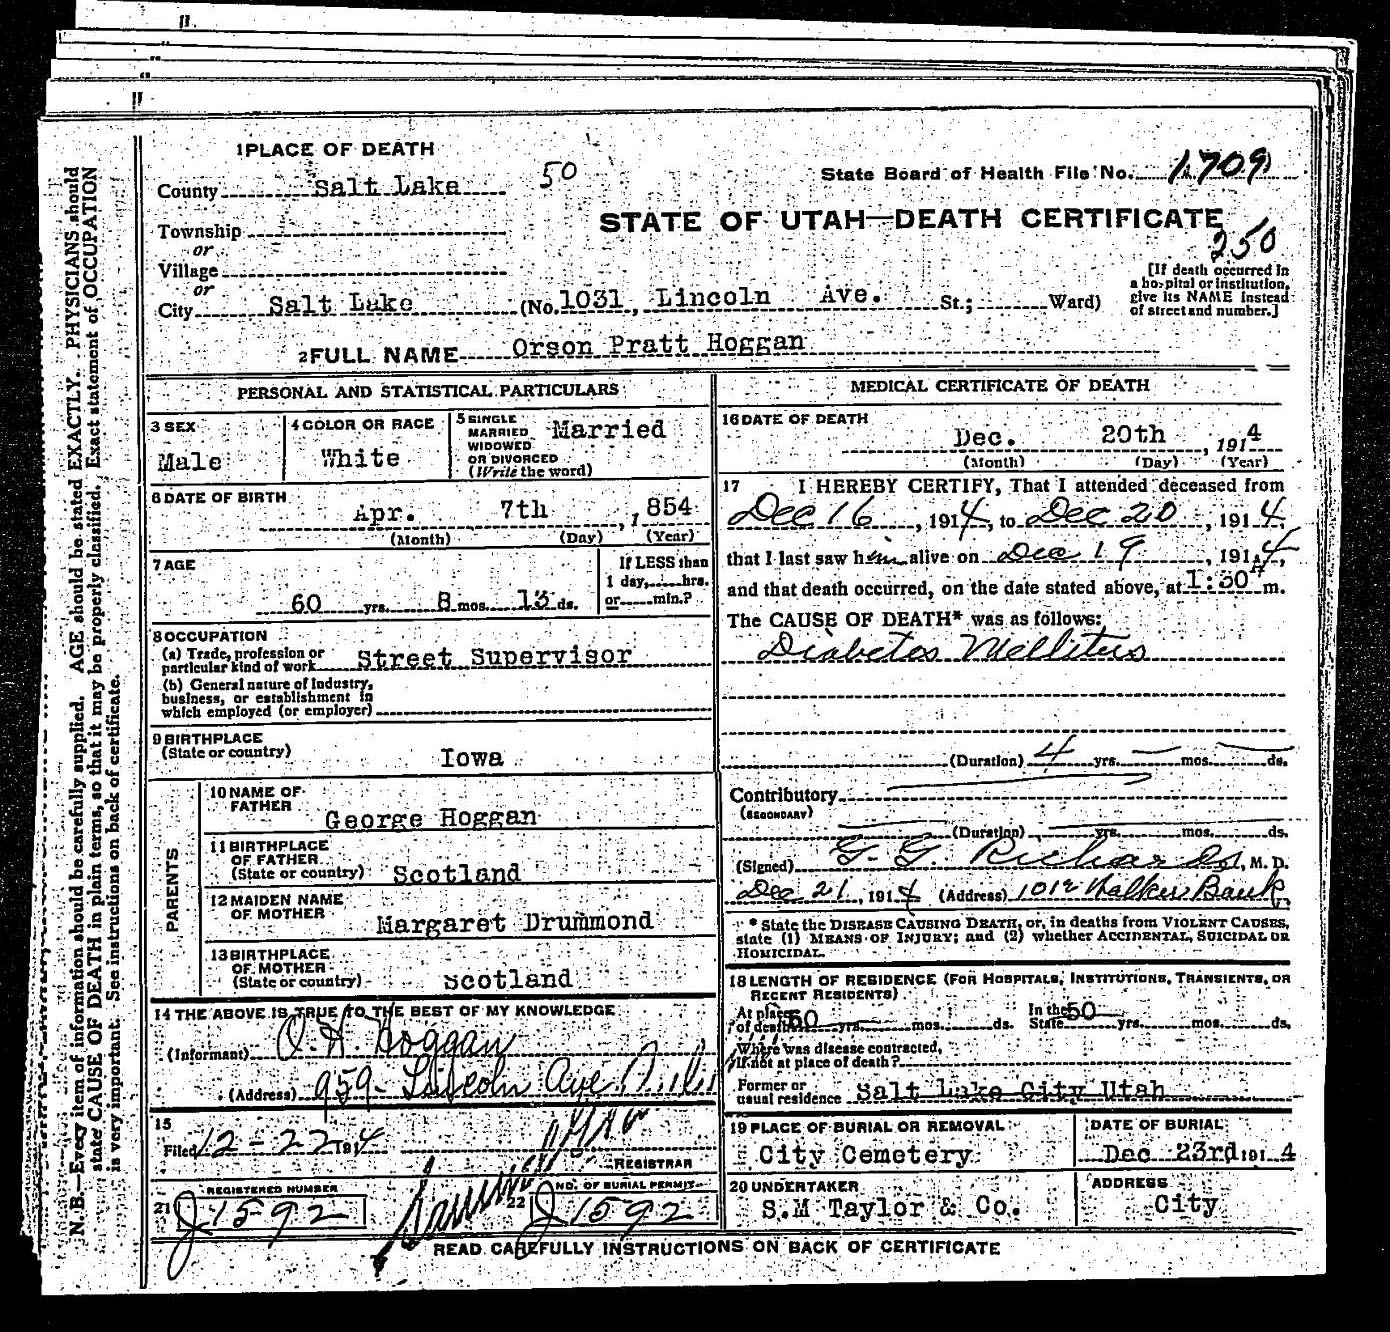 1 PLACE OF DEATH
County Salt Lake 50
State Board of Health File No. 1709
Township
or
Village
or
STATE OF UTAH—DEATH CERTIFICATE
250
[If death occurred in
a hospital or institution,
give its NAME instead
of street and number.]
City Salt Lake (No. 1031, Lincoln Ave. St.; Ward)
2 FULL NAME Orson Pratt Hoggan
PERSONAL AND STATISTICAL PARTICULARS
3 SEX
Male
4 COLOR OR RACE
White
5 SINGLE
MARRIED
WIDOWED
OR DIVORCED
(Write the word)
Married
6 DATE OF BIRTH
Apr. 7th, 1854
(Month) (Day) (Year)
7 AGE
60 yrs. 8 mos. 13 ds.
If LESS than
1 day, hrs.
or min.?
8 OCCUPATION
(a) Trade, profession or
particular kind of work Street Supervisor
(b) General nature of industry,
business, or establishment in
which employed (or employer)
9 BIRTHPLACE
(State or country)
Iowa
PARENTS
10 NAME OF
FATHER
George Hoggan
11 BIRTHPLACE
OF FATHER
(State or country) Scotland
12 MAIDEN NAME
OF MOTHER
Margaret Drummond
13 BIRTHPLACE
OF MOTHER
(State or country) Scotland
14 THE ABOVE IS TRUE TO THE BEST OF MY KNOWLEDGE
(Informant) O. H. Hoggan
(Address) 959 Lincoln Ave
15
Filed 12-22 1914
REGISTRAR
21 REGISTERED NUMBER
J 1592
22 NO. OF BURIAL PERMIT
J 1592
MEDICAL CERTIFICATE OF DEATH
16 DATE OF DEATH
Dec. 20th, 1914
(Month) (Day) (Year)
17 I HEREBY CERTIFY, That I attended deceased from
Dec 16, 1914, to Dec 20, 1914.
that I last saw him alive on Dec 19, 1914,
and that death occurred, on the date stated above, at 1:30 A m.
The CAUSE OF DEATH* was as follows:
Diabetes Mellitus
(Duration) 4 yrs. — mos. — ds.
Contributory
(SECONDARY)
(Duration) yrs. mos. ds.
(Signed) G. G. Richards, M. D.
Dec 21, 1914 (Address) 1012 Walker Bank
* State the DISEASE CAUSING DEATH, or, in deaths from VIOLENT CAUSES,
state (1) MEANS OF INJURY; and (2) whether ACCIDENTAL, SUICIDAL OR
HOMICIDAL.
18 LENGTH OF RESIDENCE (FOR HOSPITALS, INSTITUTIONS, TRANSIENTS, OR
RECENT RESIDENTS)
At place
of death 50 yrs. mos. ds. In the
State 50 yrs. mos. ds.
Where was disease contracted,
if not at place of death?
Former or
usual residence Salt Lake City Utah
19 PLACE OF BURIAL OR REMOVAL
City Cemetery
DATE OF BURIAL
Dec 23rd 1914
20 UNDERTAKER
S.M Taylor & Co.
ADDRESS
City
READ CAREFULLY INSTRUCTIONS ON BACK OF CERTIFICATE
N. B.—Every item of information should be carefully supplied. AGE should be stated EXACTLY. PHYSICIANS should
state CAUSE OF DEATH in plain terms, so that it may be properly classified. Exact statement of OCCUPATION
is very important. See instructions on back of certificate.